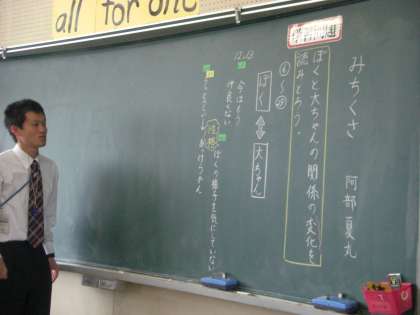 all for one
学習問題
みちくさ 阿部夏丸
ぼくと大ちゃんの関係の変化を
読みとろう。
ぼく
大ちゃん
12.13
今はもう
仲良くない
性格
ぼくの様子を気にしていない